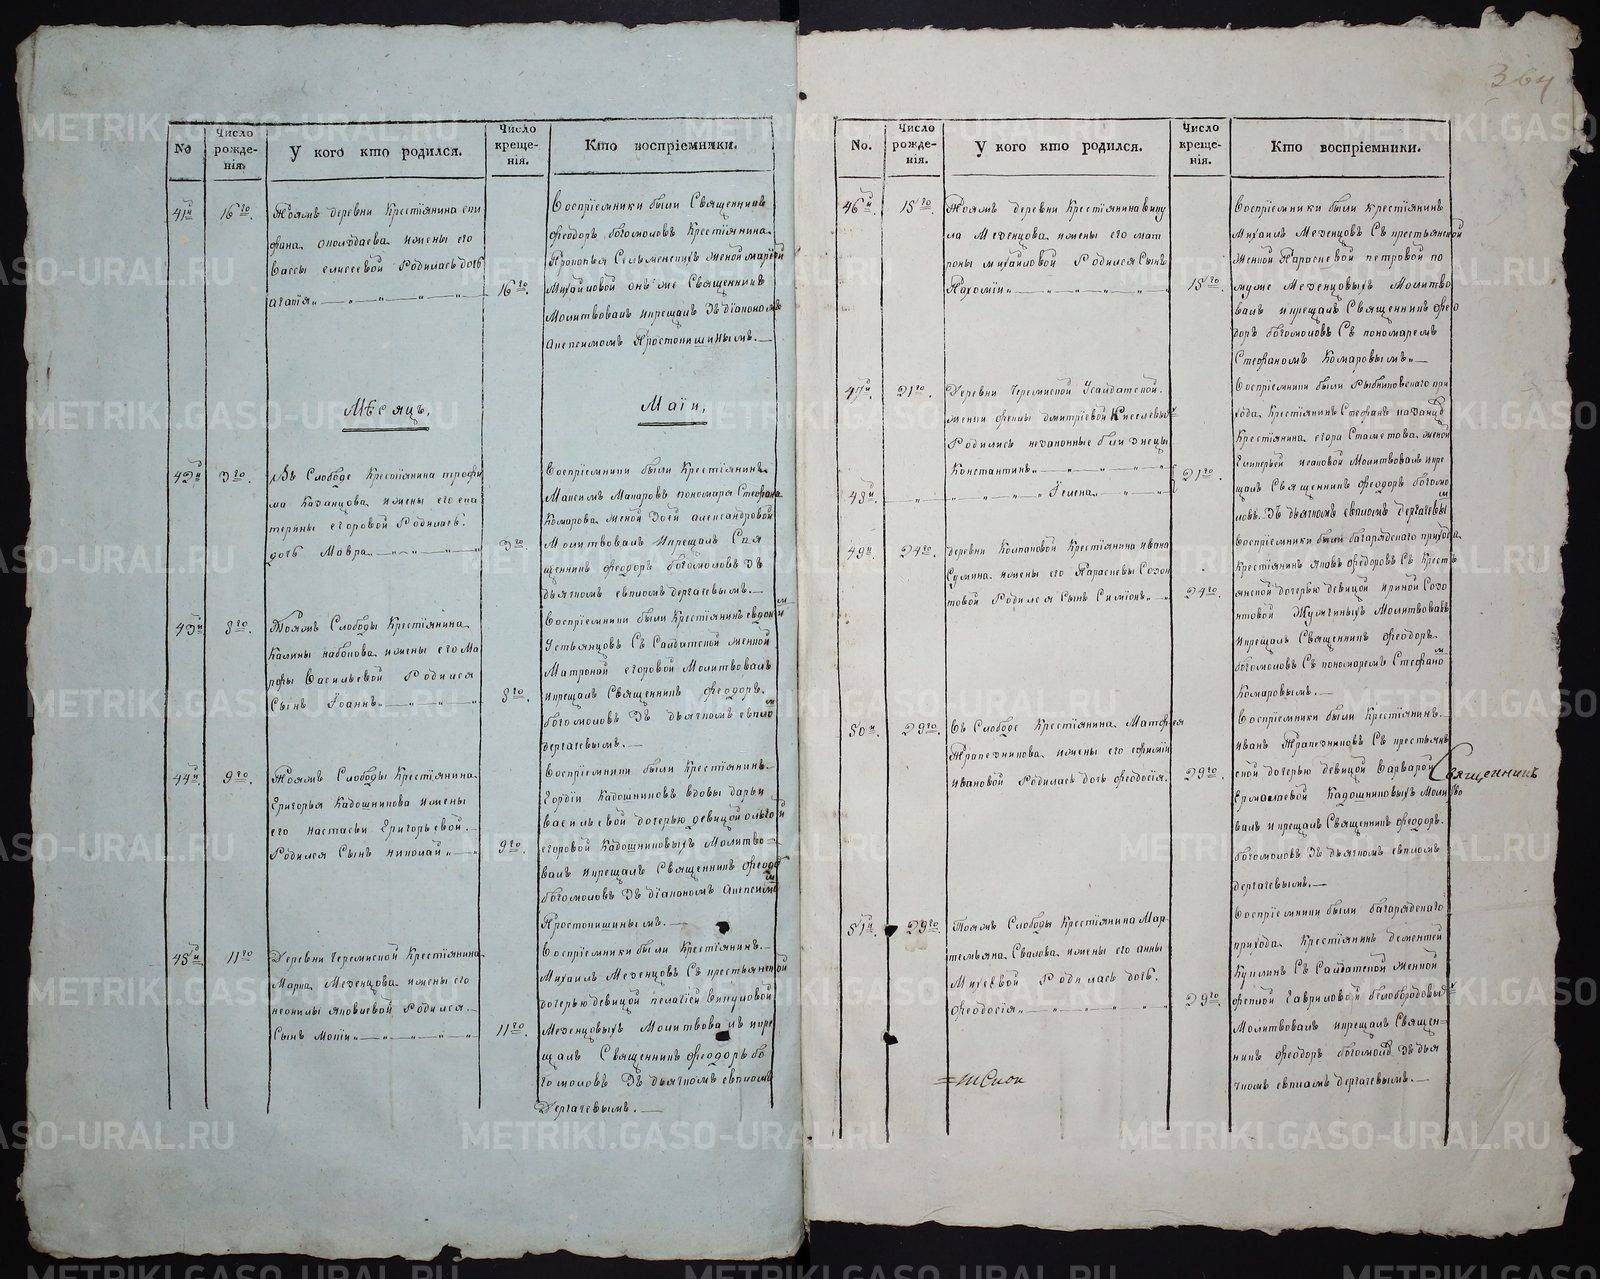 No
Число рожденія.
У кого кто родился.
Число крещенія.
Кто воспріемники.
41й
16го.
Тояжъ деревни Крестіянина епи
фана ополѣдаева ижены его
Вассы елисеевой Родилась дочь
агафія
16го.
Воспріемники были Священникъ
Феодоръ богомоловъ Крестіянина
Прокопья Сельменскихъ женой марьей
Михайловой онъ же Священникъ
Молитвовалъ икрещалъ Зъ діакономъ
Анексимомъ Простокишинымъ.
Мѣсяцъ.
Маіи.
42й
3го.
Въ Слободе Крестіянина трофи
ма Казанцова ижены его ека
терины егоровой Родилась
дочь Мавра
3го.
Воспріемники были Крестіянинъ
Максимъ Макаровъ пономаря Стефана
Комарова женой Зоей александровой
Молитвовалъ икрещалъ Свя
щенникъ феодоръ богомоловъ Зъ
дьячкомъ евпломъ дергачевымъ.
43й
8го.
Тояжъ Слободы Крестіянина
Калины набокова ижены его Ма
рфы Васильевой Родился
Сынъ Іоаннъ
8го.
Воспріемники были Крестіянинъ евдоким
Устьянцовъ Съ Салдатской женкой
Матроной егоровой Молитвовалъ
икрещалъ Священникъ феодоръ
богомоловъ Зъ дьячкомъ евплом
дергачевымъ.
44й
9го.
Тояжъ Слободы Крестіянина
Григорья Кадошникова ижены
его настасьи Григорьевой
Родился Сынъ николай
9го.
Воспріемники были Крестіянинъ
Гордій Кадошниковъ вдовы дарьи
Васильевой дочерью девицой ольгой
егоровой Кадошниковыхъ Молитво=
валъ икрещалъ Священникъ феодо
богомоловъ Зъ діакономъ Анексимо
Простокишинымъ.
45й
11го
Деревни черемиской Крестіянина
Марка Меденцова ижены его
неонилы яковлевой Родился
Сынъ Мокіи
11го.
Воспріемники были Крестіянинъ
Михаилъ Меденцовъ Съ крестьянской
дочерью девицой пелагіей викуловой
Меденцовыхъ Молитвовалъ икре
щалъ Священникъ феодоръ бо
гомоловъ Зъ дьячкомъ евпломъ
Дергачевымъ.
364
No.
Число рожденія.
У кого кто родился.
Число крещенія.
Кто воспріемники.
46й
15го.
Тояжъ деревни Крестіянина вику
ла Меденцова ижены его мат
роны михайловой Родился Сынъ
Пахоміи
15го.
Воспріемники были крестіянинъ
Михаилъ Меденцовъ Съ крестьянской
женкой Парасковей петровой по
муже Меденцовыхъ Молитво
валъ икрещалъ Священникъ фео
доръ богомоловъ Съ пономаремъ
Стефаномъ Комаровымъ
47й
21го.
Деревни Черемиской Усалдатской
женки феклы дмитріевой Киселевых
Родились незаконные близнецы
Константинъ
48й
Гелена
21го.
Воспріемники были Рыбниковскаго при
хода Крестіянинъ Стефанъ
Крестіянина егора женой
Гликерьей исаковой Молитвовалъ икре
щалъ Священникъ феодоръ богомо
ловъ Зъ дьячкомъ евпломъ дергачевы
49й
24го.
деревни Колпаковой Крестіянина ивана
Сумина ижены его Парасковьи Созон
товой Родился Сынъ Симіонъ
24го.
Воспріемники были багарядскаго прихода
крестіянинъ яковъ феодоровъ Съ Кресть
янской дочерью девицой ириной Созо
нтовой Молитвовалъ
икрещалъ Священникъ феодоръ
богомоловъ Съ пономаремъ Стефано
Комаровымъ.
50й
29го.
Въ Слободе Крестіянина Матфея
Трапезникова ижены его ефиміи
ивановой Родилась дочь феодосія
29го.
Воспріемники были Крестіянинъ
иванъ Трапезниковъ Съ крестьян
ской дочерью девицой Варварой
Ермолаевой Кадошниковыхъ Молитво
валъ икрещалъ Священникъ феодоръ
богомоловъ Зъ дьячкомъ евпломъ
дергачевымъ.
Священникъ
51й
29го.
Тояжъ Слободы Крестіянина Мар
темьяна Свалова ижены его анны
Родилась дочь
феодосія
29го.
Воспріемники были багарядскаго
прихода Крестіянинъ дементей
Куклинъ Съ Салдатской женкой
феклой Гавриловой белобородовых
Молитвовалъ икрещалъ Священ-
никъ феодоръ богомоловъ Зъ дья
чкомъ евпломъ дергачевымъ.